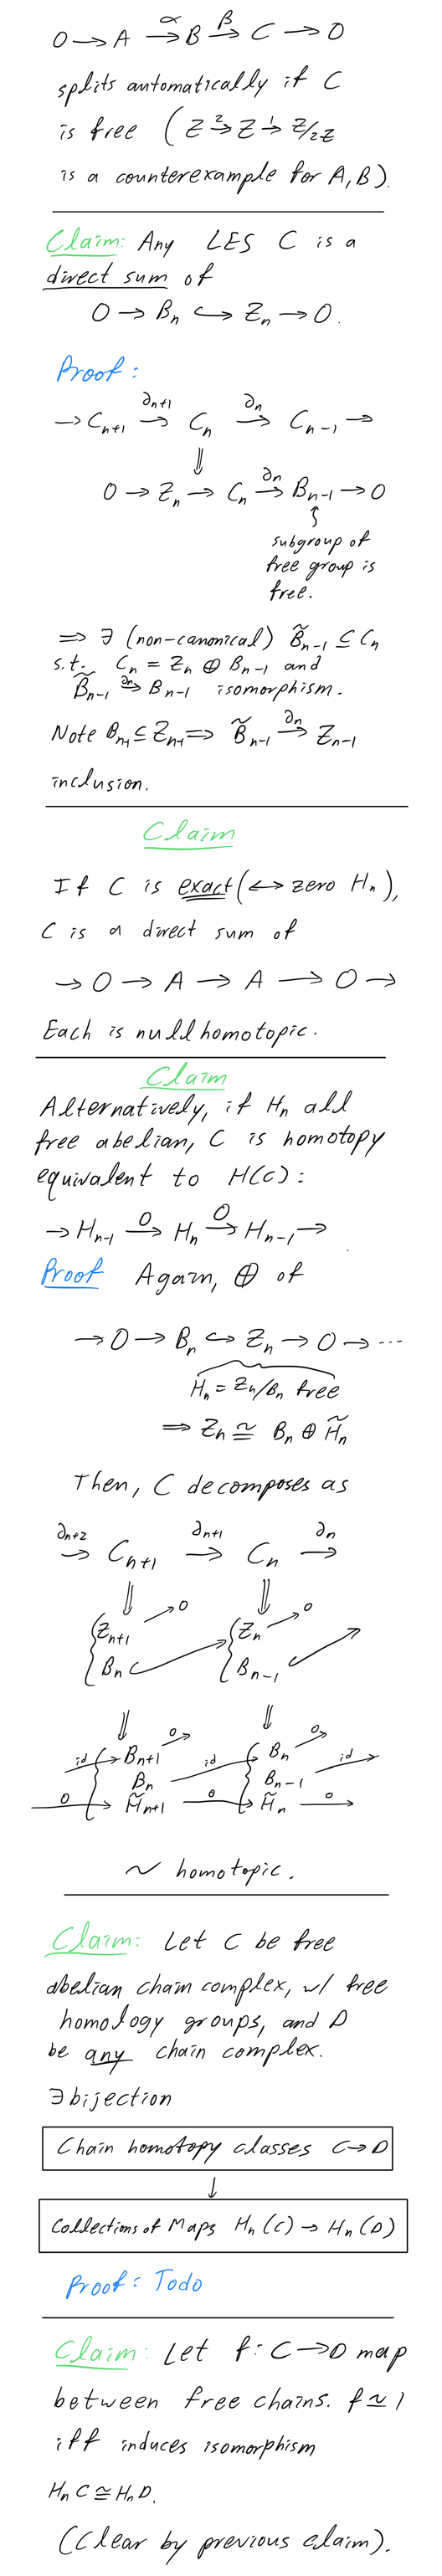 0 → A →^α B →^β C → 0
splits automatically if C
is free ( Z →^2 Z →^1 Z/2Z
is a counterexample for A, B).
Claim: Any LES C is a
direct sum of
0 → Bₙ ↪ Zₙ → 0.
Proof:
→ Cₙ₊₁ →^∂ₙ₊₁ Cₙ →^∂ₙ Cₙ₋₁ →
⇓
0 → Zₙ → Cₙ →^∂ₙ Bₙ₋₁ → 0
↑
subgroup of
free group is
free.
⇒ ∃ (non-canonical) B̃ₙ₋₁ ⊆ Cₙ
s.t. Cₙ = Zₙ ⊕ Bₙ₋₁ and
B̃ₙ₋₁ →^∂ₙ Bₙ₋₁ isomorphism.
Note Bₙ₋₁ ⊆ Zₙ₋₁ ⇒ B̃ₙ₋₁ →^∂ₙ Zₙ₋₁
inclusion.
Claim
If C is exact (↔ zero Hₙ),
C is a direct sum of
→ 0 → A → A → 0 →
Each is nullhomotopic.
Claim
Alternatively, if Hₙ all
free abelian, C is homotopy
equivalent to H(C):
→ Hₙ₋₁ →^0 Hₙ →^0 Hₙ₋₁ →
Proof Again, ⊕ of
→ 0 → Bₙ ↪ Zₙ → 0 → ···
Hₙ = Zₙ/Bₙ free
⇒ Zₙ ≅ Bₙ ⊕ H̃ₙ
Then, C decomposes as
→^∂ₙ₊₂ Cₙ₊₁ →^∂ₙ₊₁ Cₙ →^∂ₙ
⇓ ⇓
{ Zₙ₊₁ → 0 { Zₙ → 0
Bₙ ↪ Bₙ₋₁ ↪
⇓ ⇓
id → { Bₙ₊₁ → 0 id → { Bₙ → 0
Bₙ Bₙ₋₁ → id
0 → H̃ₙ₊₁ →^0 H̃ₙ →^0
~ homotopic.
Claim: Let C be free
abelian chain complex, w/ free
homology groups, and D
be any chain complex.
∃ bijection
Chain homotopy classes C → D
↓
Collections of Maps Hₙ(C) → Hₙ(D)
Proof: Todo
Claim: Let f: C → D map
between free chains. f ≃ 1
iff induces isomorphism
HₙC ≅ HₙD.
(Clear by previous claim).